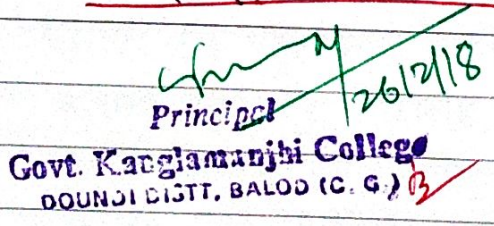 26/12/18
Principal
Govt. Kanglamanjhi College
DOUNDI DISTT. BALOD (C. G.)